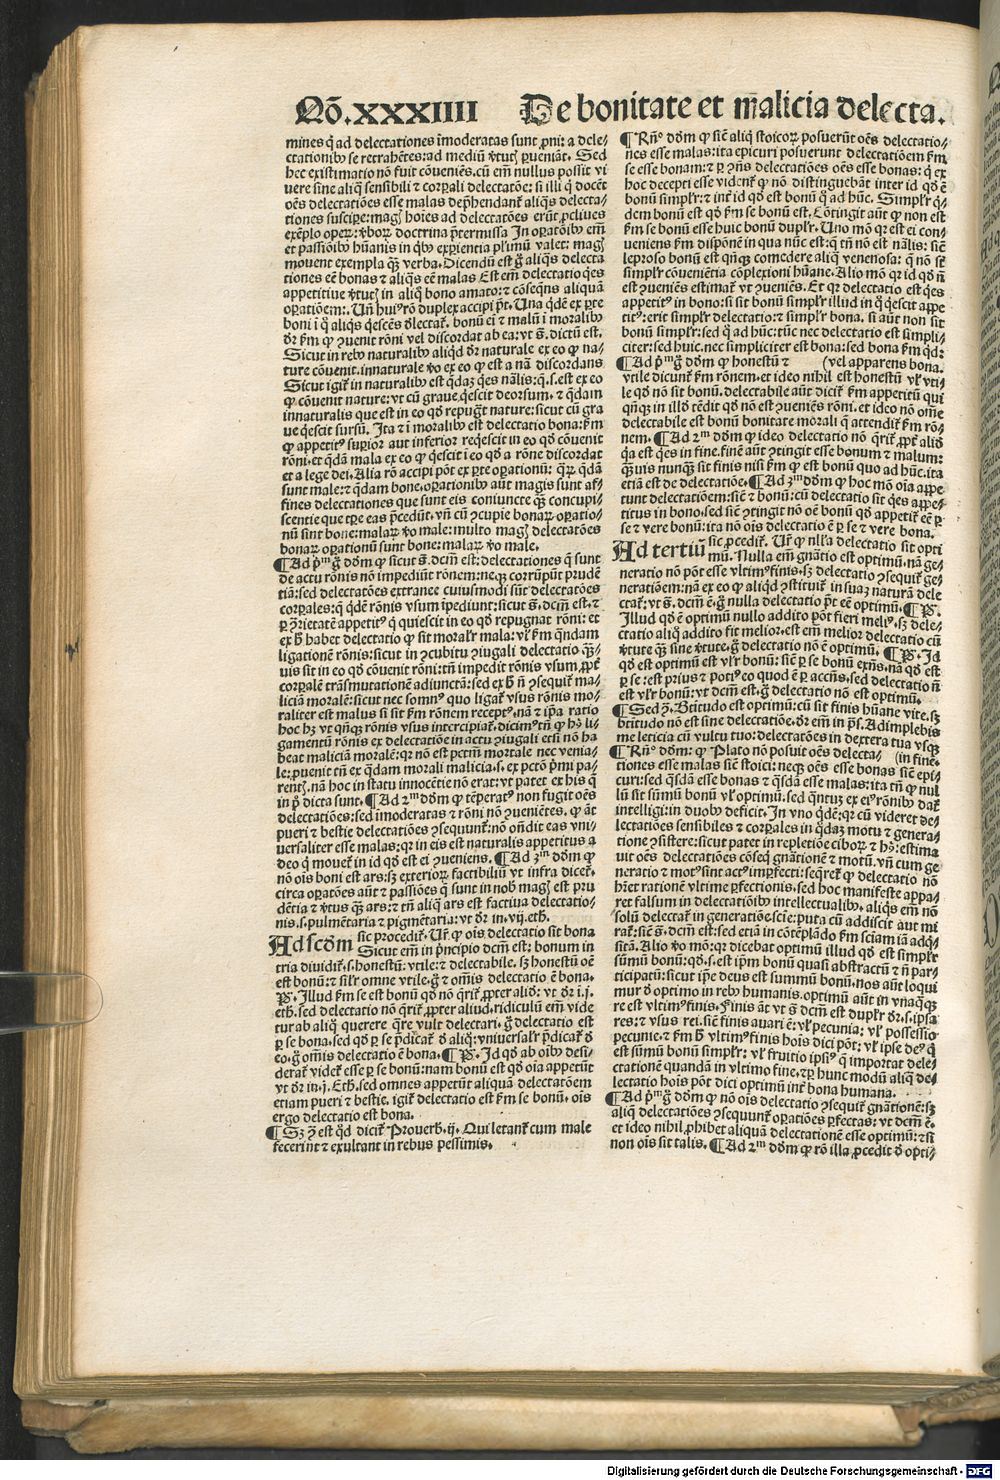 Qõ.XXXIIII De bonitate et malicia delecta.
mines q̇ ad delectationes īmoderatas sunt ꝓni: a dele-
ctationibꝰ se retrahẽtes: ad mediũ ꝟtutꝭ ꝑueniãt. Sed
hec existimatio nõ fuit cõueniẽs. cũ em̃ nullus possit vi
uere sine aliq̃ sensibili ⁊ corꝑali delectatõe: si illi q̇ docẽt
oẽs delectatiões esse malas dep̃hendant̃ aliq̃s delecta-
tiones suscipe: magꝭ hoĩes ad delectatões erũt ꝓcliues
exẽplo operꝝ: ꝟborꝝ doctrina p̃termissa In oꝑatõibꝰ em̃
et passiõibꝰ hũanis in qͥbꝰ expientia pl̃imũ valet: magꝭ
mouent exempla qꝫ̃ verba. Dicendũ est g̃ aliq̃s delecta
tiones eẽ bonas ⁊ aliq̃s eẽ malas Est em̃ delectatio q̃es
appetitiue ꝟtutꝭ in aliq̃ bono amato: ⁊ cõseq̃ns aliquã
oꝑatiõem:. Vñ huiꝰ rõ duplex accipi p̃t. Una qͥdẽ ex ꝑte
boni ĩ q̃ aliq̃s q̃escẽs d̃lectat̃. bonũ ei ⁊ malũ ĩ moralibꝰ
dr̃ ẜm ꝙ ꝯuenit rõni vel discordat ab ea: vt s̃. dictũ est.
Sicut in rebꝰ naturalibꝰ aliqͥd dr̃ naturale ex eo ꝙ na-
ture cõuenit. innaturale ꝟo ex eo ꝙ est a nã discordans
Sicut igit̃ in naturalibꝰ est q̃daꝫ q̃es nãlis: q̃. s. est ex eo
ꝙ cõuenit nature: vt cũ graue q̃escit deorsum. ⁊ q̃dam
innaturalis que est in eo qd̃ repugt̃ nature: sicut cũ gra
ue q̃escit sursũ. Ita ⁊ ĩ moralibꝰ est delectatio bona: ẜm
ꝙ appetitꝰ suꝑior aut inferior req̃escit in eo qd̃ cõuenit
rõni. et q̃dã mala ex eo ꝙ q̃escit ĩ eo qd̃ a rõne discordat
et a lege dei. Alia rõ accipi põt ex ꝑte oꝑationũ: qꝝ q̃dã
sunt male: ⁊ q̃dam bone. oꝑationibꝰ aut magis sunt af-
fines delectationes que sunt eis coniuncte qꝫ̃ concupi-
scentie que tp̃e eas p̃cedũt. vñ cũ ꝯcupie bonaꝝ oꝑatio-
nũ sint bone: malaꝝ ꝟo male: multo magꝭ delectatões
bonaꝝ oꝑationũ sunt bone: malaꝝ ꝟo male.
¶Ad pͥmũ g̃ dõm ꝙ sicut s̃. dcm̃ est: delectationes q̃ sunt
de actu rõnis nõ impediũt rõnem: neqꝫ corrũpũt prudẽ
tiã: sed delectatões extranee cuiusmodi sũt delectatões
corꝑales: q̃ qͥdẽ rõnis vsum īpediunt: sicut s̃. dcm̃ est. ⁊
ꝑ ꝯrietatẽ appetitꝰ q̃ quiescit in eo qd̃ repugnat rõni: et
ex h̃ habet delectatio ꝙ sit moralr̃ mala: vl̃ ẜm q̃ndam
ligationẽ rõnis: sicut in ꝯcubitu ꝯiugali delectatio qꝫ̃-
uis sit in eo qd̃ cõuenit rõni: tñ impedit rõnis vsum. ꝓpt̃
corꝑalẽ trãsmutationẽ adiunctã: sed ex h̃ ñ ꝯsequit̃ ma-
liciã moralẽ: sicut nec somnꝰ quo ligat̃ vsus rõnis mo-
raliter est malus si sit ẜm rõnem receptꝰ. nã ⁊ ip̃a ratio
hoc hꝫ vt qñqꝫ rõnis vsus intercipiat̃. dicimꝰ tñ ꝙ hꝰ li-
gamentũ rõnis ex delectatiõe in actu ꝯiugali etsi nõ ha
beat maliciã moralẽ: qꝛ nõ est pctm̃ mortale nec venia-
le: ꝓuenit tñ ex q̃dam morali malicia. s. ex pctõ pͥmi pa-
rentꝭ. nã hoc in statu innocẽtie nõ erat: vt patet ex his q̃
in pͥ dicta sunt. ¶Ad 2ᵐ dõm ꝙ tẽperatꝰ non fugit oẽs
delectatiões: sed imoderatas ⁊ rõni nõ ꝯueniẽtes. ꝙ ãt
pueri ⁊ bestie delectatiões ꝯsequunt̃: nõ oñdit eas vni-
uersaliter esse malas: qꝛ in eis est naturalis appetitus a
deo q̃ mouet̃ in id qd̃ est ei ꝯueniens. ¶Ad 3ᵐ dõm ꝙ
nõ oĩs boni est ars: sꝫ exteriorꝝ factibiliũ vt infra dicet̃.
circa oꝑatões aũt ⁊ passiões q̃ sunt in nob̃ magꝭ est pru
dẽtia ⁊ ꝟtus qꝫ̃ ars: ⁊ tñ aliq̃ ars est factiua delectatio-
nis. s. pulmẽtaria ⁊ pigmẽtaria: vt dr̃ in. vij. eth.
Ad scdm̃ sic ꝓcedit̃. Ur̃ ꝙ oĩs delectatio sit bona
Sicut em̃ in pͥncipio dcm̃ est: bonum in
tria diuidit̃. s. honestũ: vtile: ⁊ delectabile. sꝫ honestũ oẽ
est bonũ: ⁊ silr̃ omne vtile. g̃ ⁊ om̃is delectatio ẽ bona.
¶P̃. Illud ẜm se est bonũ qd̃ nõ q̃rit̃ ꝓpter aliõ: vt dr̃ i. j.
eth. sed delectatio nõ q̃rit̃ ꝓpter aliud. ridiculũ em̃ vide
tur ab aliq̃ querere q̃re vult delectari. g̃ delectatio est
ꝑ se bona. sed qd̃ ꝑ se p̃dicat̃ d̃ aliq̃: vniuersalr̃ p̃dicat̃ d̃
eo. g̃ om̃is delectatio ẽ bona. ¶P̃. Id qd̃ ab oĩbꝰ desi-
derat̃ videt̃ esse ꝑ se bonũ: nam bonũ est qd̃ oĩa appetũt
vt dr̃ in. j. Eth. sed omnes appetũt aliquã delectatõem
etiam pueri ⁊ bestie. igit̃ delectatio est ẜm se bonũ. oĩs
ergo delectatio est bona.
¶Sꝫ ꝯ̃ est qd̃ dicit̃ Prouerb. ij. Qui letant̃ cum male
fecerint ⁊ exultant in rebus pessimis.
¶Rño dõm ꝙ sicut̃ aliq̇ stoicoꝝ posuerũt oẽs delectatio-
nes esse malas: ita epicuri posuerunt delectatiõem ẜm
se esse bonam: ⁊ ꝑ ꝯñs delectatiões oẽs esse bonas: q̇ ex
hoc decepti esse vident̃ ꝙ nõ distinguebãt inter id qd̃ ẽ
bonũ simplr̃: ⁊ int̃ id qd̃ est bonũ q̃ ad hũc. Simplr̃ qͥ-
dem bonũ est qd̃ ẜm se bonũ est. Cõtingit aũt ꝙ non est
ẜm se bonũ esse huic bonũ duplr̃. Uno mõ qꝛ est ei con-
ueniens ẜm dispõnẽ in qua nũc est: q̃ tñ nõ est nãlis: sicut̃
leproso bonũ est qñqꝫ comedere aliq̃ venenosa: q̃ nõ st̃
simplr̃ cõueniẽtia cõplexioni hũane. Alio mõ qꝛ id qd̃ ñ
est ꝯueniẽs estimat̃ vt ꝯueniẽs. Et qꝛ delectatio est q̃es
appetitꝰ in bono: si sit bonũ simplr̃ illud in q̃ q̃escit appe
titꝰ: erit simplr̃ delectatio: ⁊ simplr̃ bona. si aũt non sit
bonũ simplr̃: sed q̃ ad hũc: tũc nec delectatio est simpli-
citer: sed huic. nec simpliciter est bona: sed bona ẜm qd̃:
¶Ad pͥmũ g̃ dõm ꝙ honestũ ⁊ (vel apparens bona.
vtile dicunt̃ ẜm rõnem. et ideo nihil est honestũ vl̃ vti-
le qd̃ nõ sit bonũ. delectabile aũt dicit̃ ẜm appetitũ qui
qñqꝫ in illd̃ tẽdit qd̃ nõ est ꝯueniẽs rõni. et ideo nõ om̃e
delectabile est bonũ bonitate morali q̃ attendit̃ ẜm rõ-
nem. ¶Ad 2ᵐ dõm ꝙ ideo delectatio nõ q̃rit̃ ꝓpt̃ aliõ
qꝛ est q̃es in fine. finẽ aũt ꝯtingit esse bonum ⁊ malum:
qꝫ̃uis nunqꝫ̃ sit finis nisi ẜm ꝙ est bonũ quo ad hũc. ita
etiã est de delectatiõe. ¶Ad 3ᵐ dõm ꝙ hoc mõ oĩa appe
tunt delectatiõem: sicut̃ ⁊ bonũ: cũ delectatio sit q̃es appe-
titus in bono. sed sicut̃ ꝯtingit nõ oẽ bonũ qd̃ appetit̃ eẽ ꝑ
se ⁊ vere bonũ: ita nõ oĩs delectatio ẽ ꝑ se ⁊ vere bona.
Ad tertiũ sic ꝓcedit̃. Ur̃ ꝙ nll̃a delectatio sit opti
mũ. Nulla em̃ gñatio est optimũ. nã ge-
neratio nõ põt esse vltimꝰ finis. sꝫ delectatio ꝯsequit̃ ge-
neratiõem: nã ex eo ꝙ aliqͥd ꝯstituit̃ in suaꝫ naturã dele
ctat̃: vt s̃. dcm̃ ẽ. g̃ nulla delectatio p̃t eẽ optimũ. ¶P̃.
Illud qd̃ ẽ optimũ nullo addito põt fieri meliꝰ. sꝫ dele-
ctatio aliq̃ addito fit melior. est em̃ melior delectatio cũ
ꝟtute qꝫ̃ sine ꝟtute. g̃ delectatio nõ ẽ optimũ. ¶P̃. Id
qd̃ est optimũ est vlr̃ bonũ: sicut̃ ꝑ se bonũ exñs. nã qd̃ est
ꝑ se: est prius ⁊ potiꝰ eo quod ẽ ꝑ accñs. sed delectatio ñ
est vlr̃ bonũ: vt dcm̃ est. g̃ delectatio nõ est optimũ.
¶Sed ꝯ̃. Btitudo est optimũ: cũ sit finis hũane vite. sꝫ
btitudo nõ est sine delectatiõe. dr̃ em̃ in ps̃. Adimplebis
me leticia cũ vultu tuo: delectatões in dextera tua vsqꝫ
¶Rño dõm: ꝙ Plato nõ posuit oẽs delecta- (in finẽ.
tiones esse malas sicut̃ stoici: neqꝫ oẽs esse bonas sicut̃ epi-
curi: sed q̃sdã esse bonas ⁊ q̃sdã esse malas: ita tñ ꝙ nul
lũ sit sũmũ bonũ vl̃ optimũ. sed q̃ntuꝫ ex eiꝰ rõnibꝰ dat̃
intelligi: in duobꝰ deficit. In vno qͥdẽ: qꝛ cũ videret de-
lectatiões sensibiles ⁊ corꝑales in q̃daꝫ motu ⁊ genera-
tione ꝯsistere: sicut patet in repletiõe ciboꝝ ⁊ hꝰ: estima
uit oẽs delectatiões cõseq̃ gñationẽ ⁊ motũ. vñ cum ge
neratio ⁊ motꝰ sint actꝰ imꝑfecti: seq̃ret̃ ꝙ delectatio nõ
hr̃et rationẽ vltime ꝑfectionis. sed hoc manifeste appa-
ret falsum in delectatiõibꝰ intellectualibꝰ. aliq̃s em̃ nõ
solũ delectat̃ in generatiõe scie: puta cũ addiscit aut mi
rat̃: sicut̃ s̃. dcm̃ est: sed etiã in cõtẽplãdo ẜm sciam iã adq̃-
sitã. Alio ꝟo mõ: qꝛ dicebat optimũ illud qd̃ est simplr̃
sũmũ bonũ: qd̃. s. est ip̃m bonũ quasi abstractũ ⁊ ñ par-
ticipatũ: sicut ip̃e deus est summũ bonũ. nos aũt loqui
mur d̃ optimo in rebꝰ humanis. optimũ aũt in vnaq̃qꝫ
re est vltimꝰ finis. Finis ãt vt s̃. dcm̃ est duplr̃ dr̃. s. ip̃sa
res: ⁊ vsus rei. sicut̃ finis auari ẽ: vl̃ pecunia: vl̃ possessio
pecunie. ⁊ ẜm h̃ vltimꝰ finis hoĩs dici põt: vl̃ ip̃se deꝰ q̃
est sũmũ bonũ simplr̃: vl̃ fruitio ip̃siꝰ q̃ importat dele-
ctationẽ quandã in vltimo fine. ⁊ ꝑ hunc modũ aliq̃ de-
lectatio hoĩs põt dici optimũ int̃ bona humana.
¶Ad pͥmũ g̃ dõm ꝙ nõ oĩs delectatio ꝯsequit̃ gñationẽ: sꝫ
aliq̃ delectatiões ꝯsequunt̃ oꝑatiões ꝑfectas: vt dcm̃ ẽ.
et ideo nihil ꝓhibet aliquã delectationẽ esse optimũ: etsi
non oĩs sit talis. ¶Ad 2ᵐ dõm ꝙ rõ illa ꝓcedit d̃ opti-
Digitalisierung gefördert durch die Deutsche Forschungsgemeinschaft - DFG